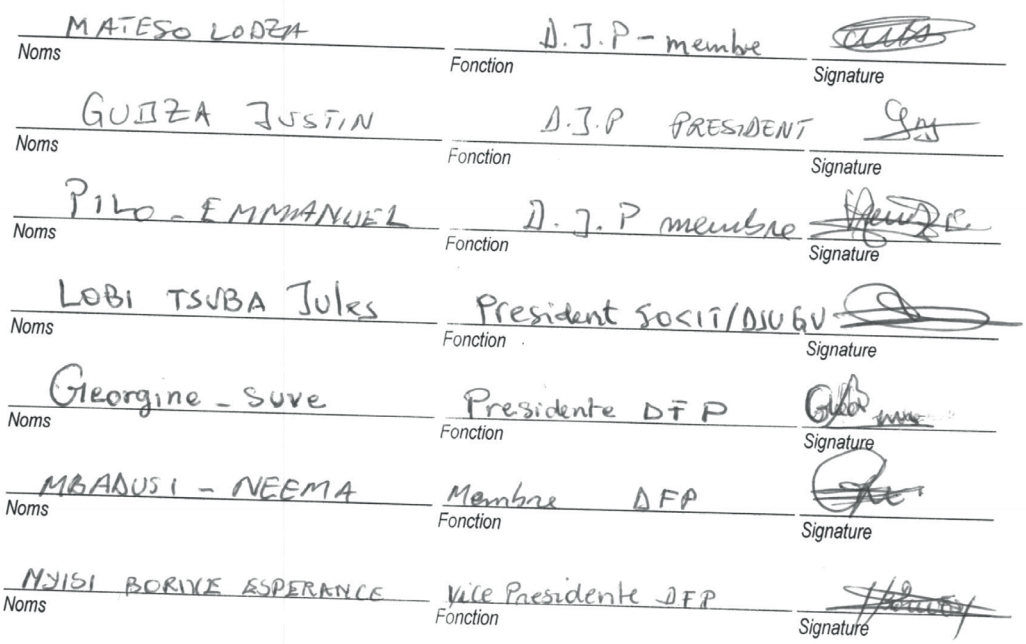 MATESO LODZA D.J.P - membre
Noms Fonction Signature
GUDZA JUSTIN D.J.P PRESIDENT
Noms Fonction Signature
PILO - EMMANUEL D.J.P membre
Noms Fonction Signature
LOBI TSUBA Jules President SOCIT/DJUGU
Noms Fonction Signature
Georgine - suve Presidente DFP
Noms Fonction Signature
MBADUSI - NEEMA Membre DFP
Noms Fonction Signature
NYISI BORIVE ESPERANCE Vice Presidente DFP
Noms Fonction Signature